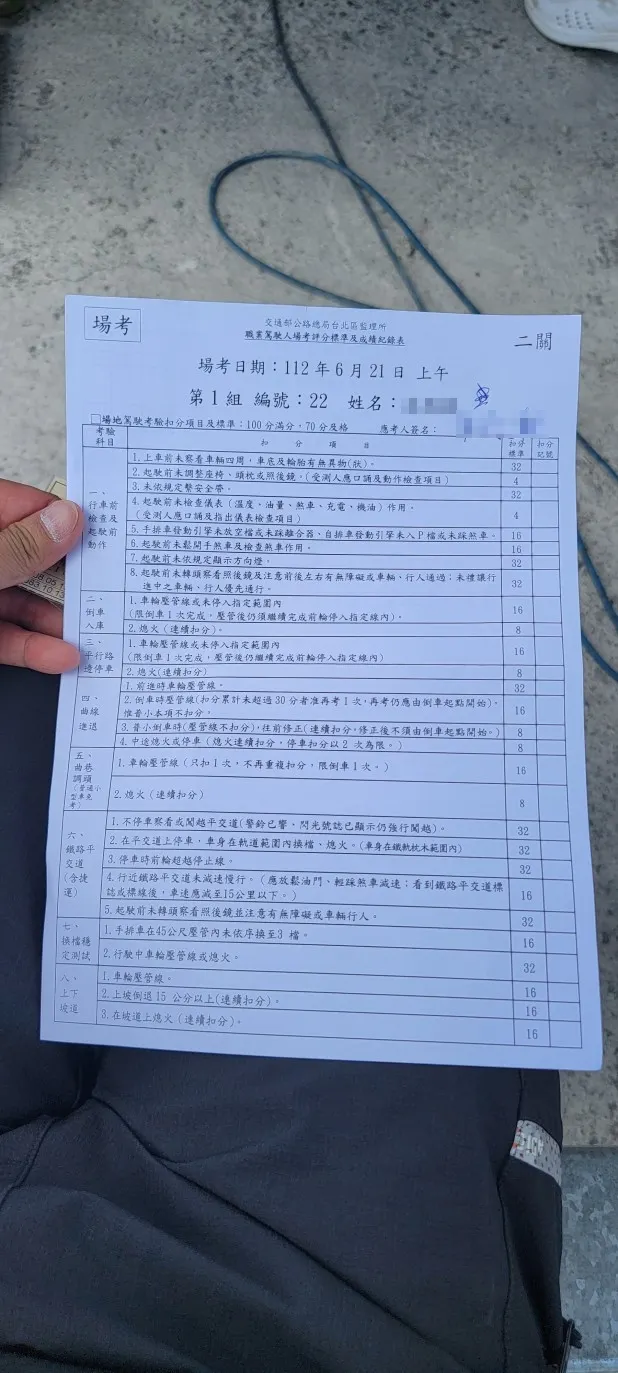 場考
交通部公路總局台北區監理所
職業駕駛人場考評分標準及成績紀錄表
二關
場考日期：112 年 6 月 21 日 上午
第 1 組 編號：22 姓名：
□場地駕駛考驗扣分項目及標準：100 分滿分，70 分及格 應考人簽名：
考驗科目 扣分項目 扣分標準 扣分記號
一、行車前檢查及起駛前動作
1.上車前未察看車輛四周，車底及輪胎有無異物(狀)。 32
2.起駛前未調整座椅、頭枕或照後鏡。(受測人應口誦及動作檢查項目) 4
3.未依規定繫安全帶。 32
4.起駛前未檢查儀表（溫度、油量、煞車、充電、機油）作用。
（受測人應口誦及指出儀表檢查項目） 4
5.手排車發動引擎未放空檔或未踩離合器、自排車發動引擎未入 P 檔或未踩煞車。 16
6.起駛前未鬆開手煞車及檢查煞車作用。 16
7.起駛前未依規定顯示方向燈。 32
8.起駛前未轉頭察看照後鏡及注意前後左右有無障礙或車輛、行人通過；未禮讓行
進中之車輛、行人優先通行。 32
二、倒車入庫
1.車輪壓管線或未停入指定範圍內
(限倒車 1 次完成，壓管後仍須繼續完成前輪停入指定線內)。 16
2.熄火（連續扣分）。 8
三、平行路邊停車
1.車輪壓管線或未停入指定範圍內
(限倒車 1 次完成，壓管後仍繼續完成前輪停入指定線內) 16
2.熄火(連續扣分) 8
四、曲線進退
1.前進時車輪壓管線。 32
2.倒車時壓管線(扣分累計未超過 30 分者准再考 1 次，再考仍應由倒車起點開始)。
惟普小本項不扣分。 16
3.普小倒車時(壓管線不扣分)，往前修正(連續扣分，修正後不須由倒車起點開始。) 8
4.中途熄火或停車（熄火連續扣分，停車扣分以 2 次為限。） 8
五、曲巷調頭（普通小型車免考）
1.車輪壓管線（只扣 1 次，不再重複扣分，限倒車 1 次。） 16
2.熄火（連續扣分） 8
六、鐵路平交道（含捷運）
1.不停車察看或闖越平交道(警鈴已響、閃光號誌已顯示仍強行闖越)。 32
2.在平交道上停車，車身在軌道範圍內換檔、熄火。(車身在鐵軌枕木範圍內) 32
3.停車時前輪超越停止線。 32
4.行近鐵路平交道未減速慢行。（應放鬆油門、輕踩煞車減速；看到鐵路平交道標
誌或標線後，車速應減至15公里以下。） 16
5.起駛前未轉頭察看照後鏡並注意有無障礙或車輛行人。 32
七、換檔穩定測試
1.手排車在45公尺壓管內未依序換至3 檔。 16
2.行駛中車輪壓管線或熄火。 32
八、上下坡道
1.車輪壓管線。 16
2.上坡倒退 15 公分以上(連續扣分)。 16
3.在坡道上熄火（連續扣分）。 16